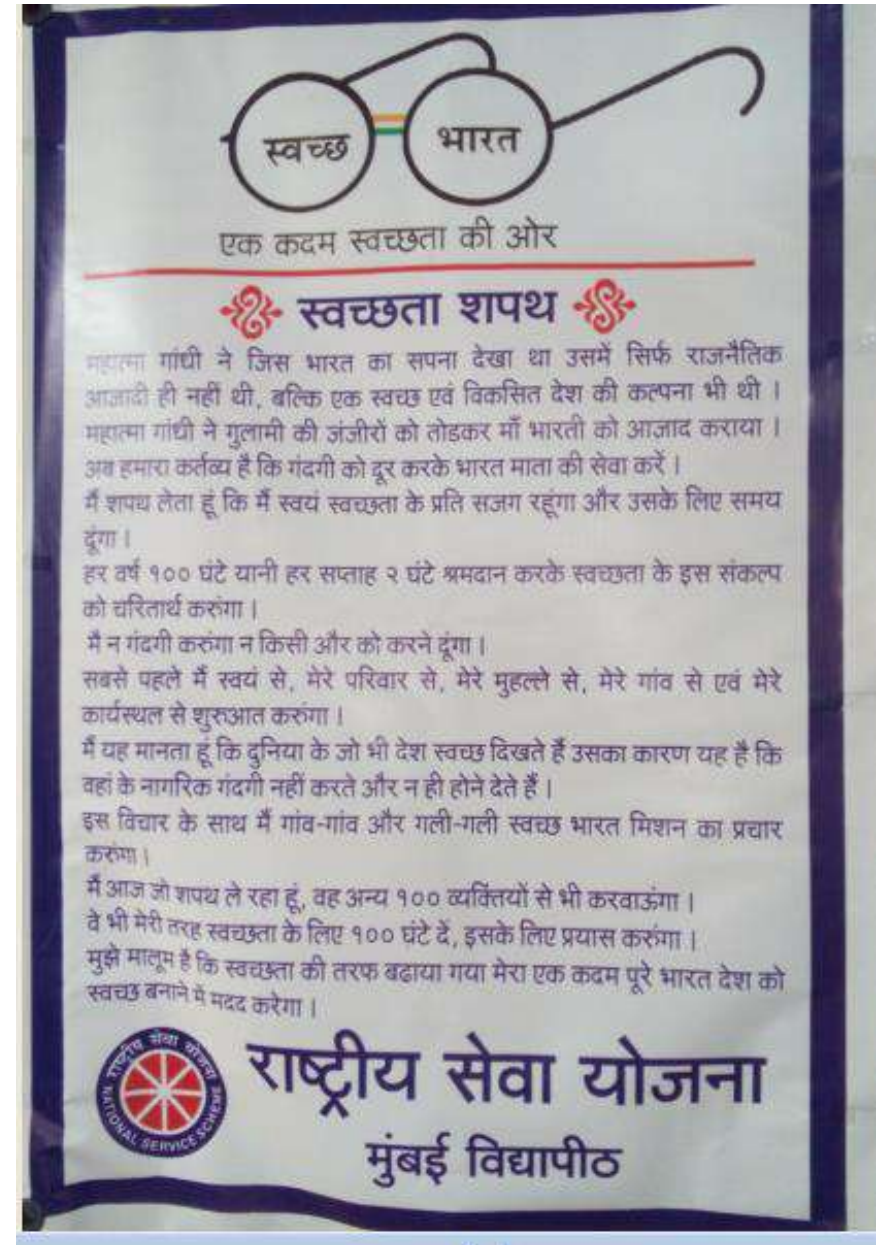 स्वच्छ भारत
एक कदम स्वच्छता की ओर
स्वच्छता शपथ
महात्मा गांधी ने जिस भारत का सपना देखा था उसमें सिर्फ राजनैतिक
आजादी ही नहीं थी, बल्कि एक स्वच्छ एवं विकसित देश की कल्पना भी थी ।
महात्मा गांधी ने गुलामी की जंजीरों को तोडकर माँ भारती को आजाद कराया ।
अब हमारा कर्तव्य है कि गंदगी को दूर करके भारत माता की सेवा करें ।
मैं शपथ लेता हूं कि मैं स्वयं स्वच्छता के प्रति सजग रहूंगा और उसके लिए समय
दूंगा ।
हर वर्ष १०० घंटे यानी हर सप्ताह २ घंटे श्रमदान करके स्वच्छता के इस संकल्प
को चरितार्थ करुंगा ।
मै न गंदगी करुंगा न किसी और को करने दूंगा ।
सबसे पहले मैं स्वयं से, मेरे परिवार से, मेरे मुहल्ले से, मेरे गांव से एवं मेरे
कार्यस्थल से शुरुआत करुंगा ।
मैं यह मानता हूं कि दुनिया के जो भी देश स्वच्छ दिखते हैं उसका कारण यह है कि
वहां के नागरिक गंदगी नहीं करते और न ही होने देते हैं ।
इस विचार के साथ मैं गांव-गांव और गली-गली स्वच्छ भारत मिशन का प्रचार
करुंगा ।
मैं आज जो शपथ ले रहा हूं, वह अन्य १०० व्यक्तियों से भी करवाऊंगा ।
वे भी मेरी तरह स्वच्छता के लिए १०० घंटे दें, इसके लिए प्रयास करुंगा ।
मुझे मालूम है कि स्वच्छता की तरफ बढाया गया मेरा एक कदम पूरे भारत देश को
स्वच्छ बनाने मे मदद करेगा ।
राष्ट्रीय सेवा योजना
NATIONAL SERVICE SCHEME
राष्ट्रीय सेवा योजना
मुंबई विद्यापीठ